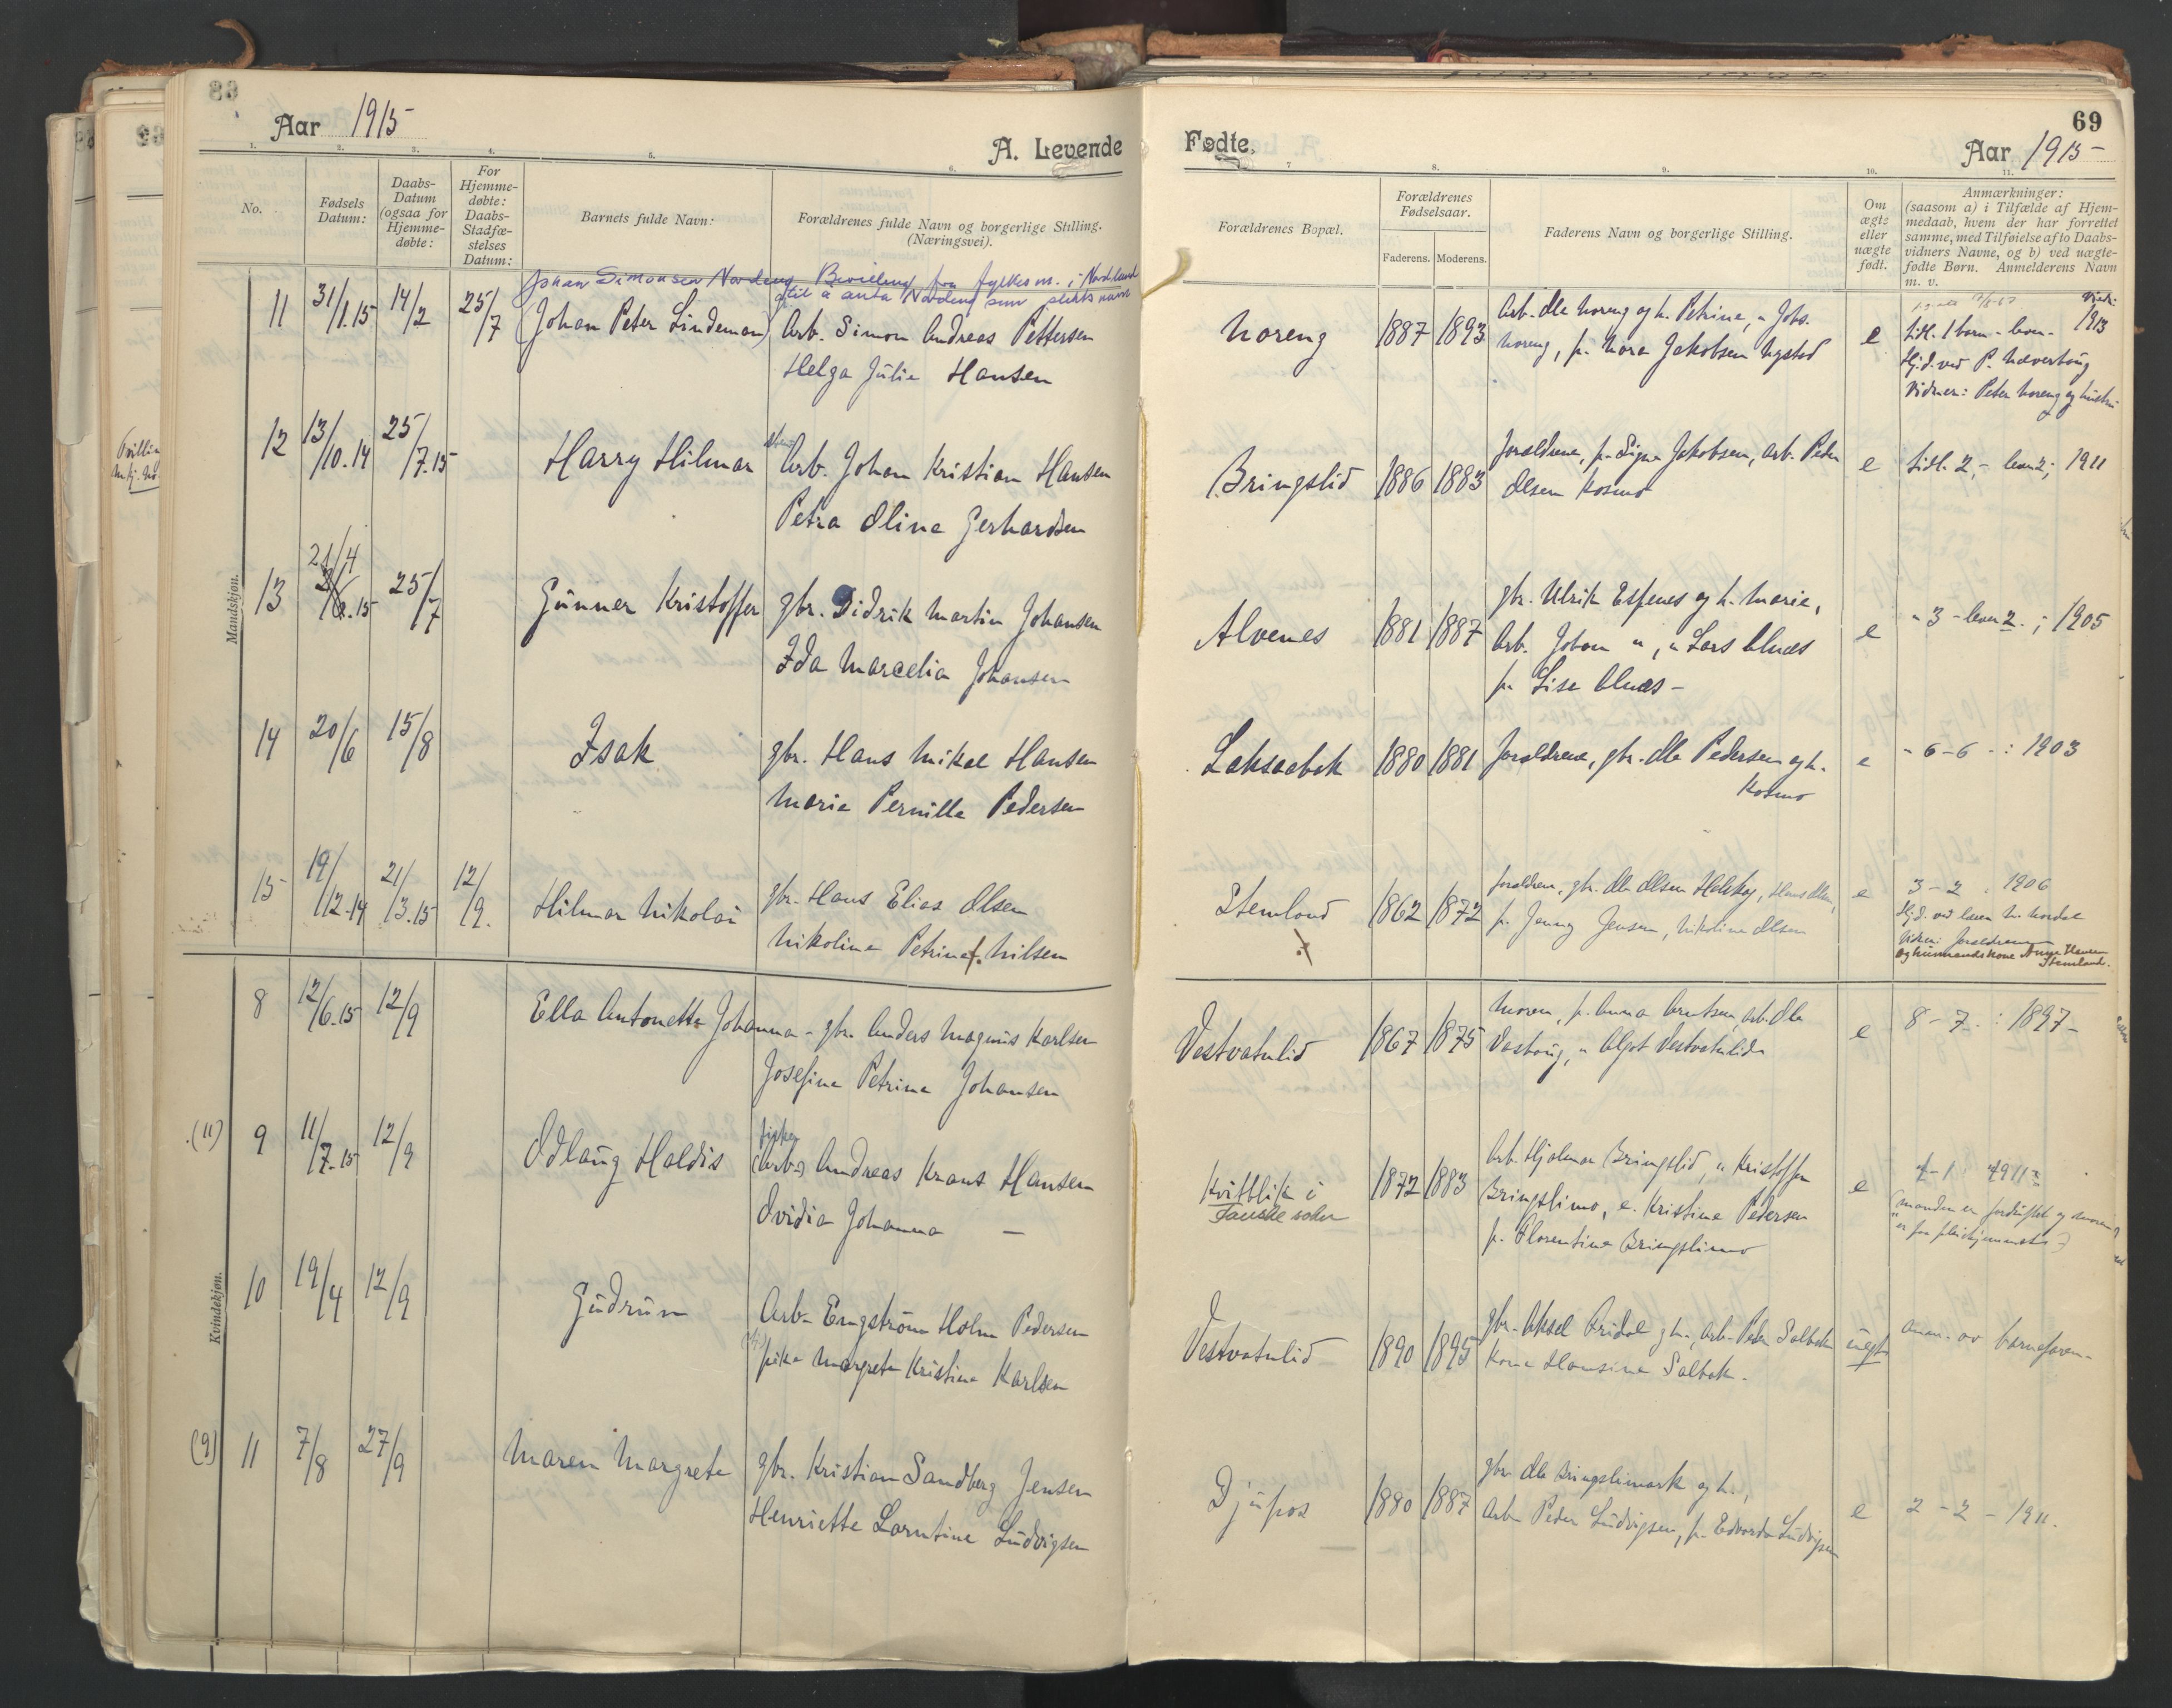 69
Aar 1915
A. Levende
Fødte.
Aar 1915
1. 2. 3. 4. 5. 6. 7 8. 9. 10. 11.
No.
Fødsels Datum:
Daabs-
Datum
(ogsaa for
Hjemme-
døbte:
For
Hjemme-
døbte:
Daabs-
Stadfæ-
stelses
Datum:
Barnets fulde Navn:
Forældrenes fulde Navn og borgerlige Stilling.
(Næringsvei).
Forældrenes Bopæl.
Forældrenes
Fødselsaar.
Faderens. Moderens.
Faderens Navn og borgerlige Stilling.
Om
ægte
eller
uægte
født.
Anmærkninger:
(saasom a) i Tilfælde af Hjem-
medaab, hvem der har forrettet
samme, med Tilføielse af to Daabs-
vidners Navne, og b) ved uægte-
fødte Børn. Anmelderens Navn
m. v.
Mandskjøn.
Johan Simonsen Nordeng Bevilling fra fylkesm. i Nordland
til å anta Nordeng som slektsnavn
11 31/1.15 14/2 25/7 (Johan Peter Lindeman) Arb. Simon Andreas Pettersen
Helga Julie Hansen
Moreng 1887 1893 Arb. Ole Moreng og h. Petrine, " Johs.
Moreng, p. Nora Jakobsen Nystad
e tidl. 1 barn - lever - Viede: 1913
Hj.d. ved P. Hævertaug
Vidner: Peter Moreng og hustru
12 13/10.14 25/7.15 Harry Hilmar Arb. Johan Kristian Hansen
Petra Oline Gerhardsen
Bringslid 1886 1883 Forældrene, p. Signe Jakobsen, arb. Peder
Olsen Kosmo
e tidl. 2, - lever 2; 1911
13 21/4 15 25/7 Gunner Kristoffer gbr. Didrik Martin Johansen
Ida Marcelia Johansen
Alvenes 1881 1887 gbr. Ulrik Espenes og h. Marie,
Arb. Johan ", " Lars Alnæs
p. Lise Alnæs -
e " 3 - lever 2. ; 1905
14 20/6 15/8 Isak gbr. Hans Mikal Hansen
Marie Pernille Pedersen
Laksaabak 1880 1881 Forældrene, gbr. Ole Pedersen og h.
Kosmo
e " 6 - 6 - : 1903
15 19/12.14 21/3.15 12/9. Hilmar Nikolai gbr. Hans Elias Olsen
Nikoline Petrine f. Nilsen
Stemland 1862 1872 Forældrene, gbr. Ole Olsen Helskog, Hans Olsen,
p. Jenny Jensen, Nikoline Olsen
e 3 - 2 : 1906
Vidner: Forældrene
Stemland.
Kvindekjøn.
8 12/6.15 12/9 Ella Antonette Johanna - gbr. Anders Magnus Karlsen
Josefine Petrine Johansen
Vestvatnlid 1867 1875 Moren, p. Anna Arntsen, arb. Ole
Vestvatnlid
e 8 - 7. : 1897 -
(11) 9 11/7.15 12/9 Odlaug Haldis fisker
(Arb.) Andreas Krans Hansen
Ovidia Johanna —
Kvittlik i
Fauske sokn
1872 1883 Arb. Hjalmar Bringslid, " Kristoffer
Bringslimo, e. Kristine Pedersen
p. Florentine Bringslimo
e
10 19/4 12/9 Gudrun Arb. Engstrøm Holm Pedersen
pike Margrete Kristine Karlsen
Vestvatnlid 1890 1895 gbr. Aksel Bridal og h., arb. Peder Salbak
Kone Hansine Salbak.
uegt anm. av barnefaren -
(9) 11 7/8 27/9 Maren Margrete gbr. Kristian Sandberg Jensen
Henriette Lorntine Ludvigsen
Djupos 1880 1887 gbr. Ole Bringslimark og h.,
Arb. Peder Ludvigsen, p. Edvarda Ludvigsen
e 2 - 2 - 1911.